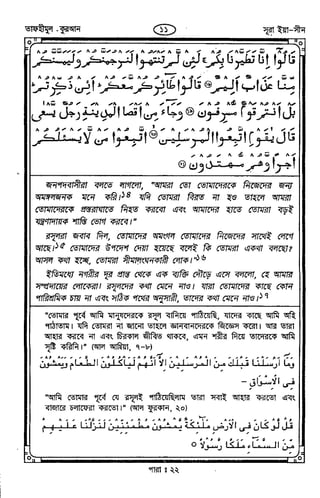 তাফহীমুল কুরআন
১১
সূরা ইয়া-সীন
قَالُوْٓا اِنَّا تَطَيَّرْنَا بِكُمْ ۚ لَئِنْ لَّمْ تَنْتَهُوْا لَنَرْجُمَنَّكُمْ وَلَيَمَسَّنَّكُمْ
مِّنَّا عَذَابٌ اَلِيْمٌ ۝ قَالُوْا طَآئِرُكُمْ مَّعَكُمْ ؕ اَئِنْ ذُكِّرْتُمْ ؕ
بَلْ اَنْتُمْ قَوْمٌ مُّسْرِفُوْنَ ۝ وَجَآءَ مِنْ اَقْصَا الْمَدِيْنَةِ رَجُلٌ يَّسْعٰى
قَالَ يٰقَوْمِ اتَّبِعُوا الْمُرْسَلِيْنَ ۝ اتَّبِعُوْا مَنْ لَّا يَسْـَٔلُكُمْ
اَجْرًا وَّهُمْ مُّهْتَدُوْنَ ۝
জনপদবাসীরা বলতে লাগলো, “আমরা তো তোমাদেরকে নিজেদের জন্য
অমঙ্গলজনক মনে করি।১৪ যদি তোমরা বিরত না হও তাহলে আমরা
তোমাদেরকে প্রস্তরাঘাতে নিহত করবো এবং আমাদের হাতে তোমরা বড়ই
যন্ত্রণাদায়ক শাস্তি ভোগ করবে।”
রসূলরা জবাব দিল, তোমাদের অমংগল তোমাদের নিজেদের সাথেই লেগে
আছে।১৫ তোমাদের উপদেশ দেয়া হয়েছে বলেই কি তোমরা একথা বলছো?
আসল কথা হচ্ছে, তোমরা সীমালংঘনকারী লোক।১৬
ইতিমধ্যে নগরীর দূর প্রান্ত থেকে এক ব্যক্তি দৌড়ে এসে বললো, হে আমার
সম্প্রদায়ের লোকেরা! রসূলদের কথা মেনে নাও। যারা তোমাদের কাছে কোন
পারিশ্রমিক চায় না এবং সঠিক পথের অনুসারী, তাদের কথা মেনে নাও।১৭
“তোমার পূর্বে আমি মানুষদেরকে রসূল বানিয়ে পাঠিয়েছি, যাদের কাছে আমি অহি
পাঠাতাম। যদি তোমরা না জানো তাহলে জ্ঞানবানদেরকে জিজ্ঞেস করো। আর তারা
আহার করবে না এবং চিরকাল জীবিত থাকবে, এমন শরীর দিয়ে তাদেরকে আমি
সৃষ্টি করিনি।” (আল আম্বিয়া, ৭-৮)
وَمَآ اَرْسَلْنَا قَبْلَكَ مِنَ الْمُرْسَلِيْنَ اِلَّآ اِنَّهُمْ لَيَاْكُلُوْنَ الطَّعَامَ وَيَمْشُوْنَ
فِى الْاَسْوَاقِ -
“আমি তোমার পূর্বে যে রসূলই পাঠিয়েছিলাম তারা সবাই আহার করতো এবং
বাজারে চলাফেরা করতো।” (আল ফুরকান, ২০)
قُلْ لَّوْ كَانَ فِى الْاَرْضِ مَلٰٓئِكَةٌ يَّمْشُوْنَ مُطْمَئِنِّيْنَ لَنَزَّلْنَا عَلَيْهِمْ
مِّنَ السَّمَآءِ مَلَكًا رَّسُوْلًا ۝
পারা : ২২